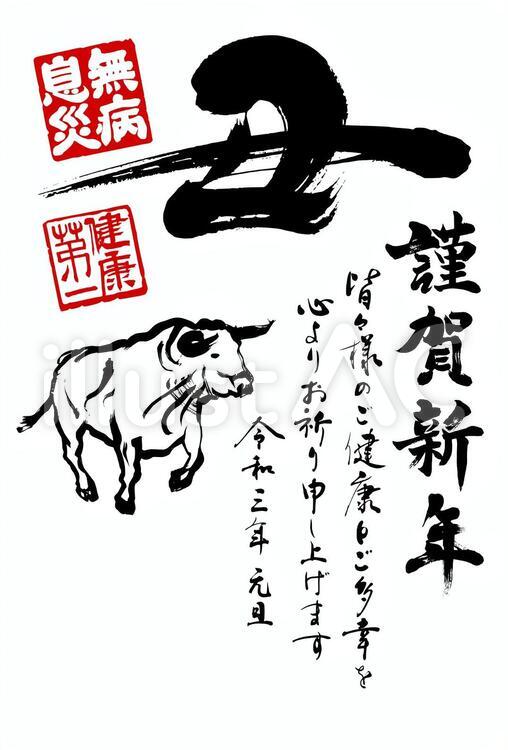 丑
無病
息災
健康
第一
謹賀新年
皆々様のご健康とご多幸を
心よりお祈り申し上げます
令和三年 元旦
illust AC